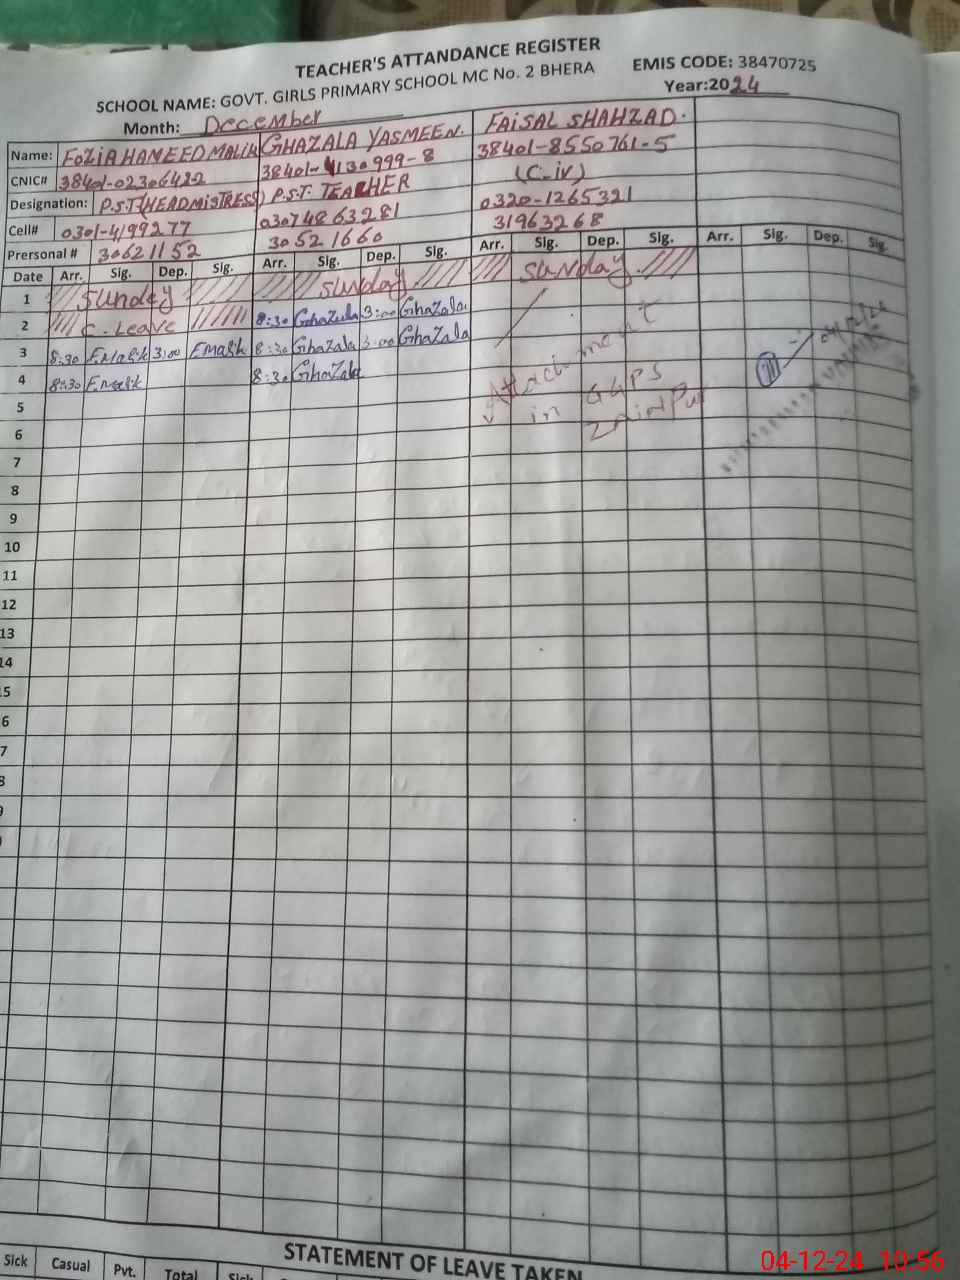 TEACHER'S ATTANDANCE REGISTER
SCHOOL NAME: GOVT. GIRLS PRIMARY SCHOOL MC No. 2 BHERA EMIS CODE: 38470725
Month: December Year:2024
Name: FOZIA HAMEED MALIK GHAZALA YASMEEN. FAISAL SHAHZAD.
CNIC# 38401-02306422 38401-4130999-8 38401-8550761-5
Designation: P.S.T (HEADMISTRESS) P.S.T. TEACHER (C-iv)
Cell# 0301-4199277 03074863281 0320-1265321
Prersonal # 30621152 30521660 31963268
Date Arr. Sig. Dep. Sig. Arr. Sig. Dep. Sig. Arr. Sig. Dep. Sig. Arr. Sig. Dep. Sig.
1 Sunday Sunday Sunday
2 C. Leave 8:30 Ghazala 3:00 Ghazala
3 8:30 F.Malik 3:00 F.Malik 8:30 Ghazala 3:00 Ghazala
4 8:30 F.Malik 8:30 Ghazala
Attachment
in GGPS
Zainpur
04/12/24
5
6
7
8
9
10
11
12
13
14
15
6
7
8
9
STATEMENT OF LEAVE TAKEN
Sick Casual Pvt. Total Sick
04-12-24 10:56